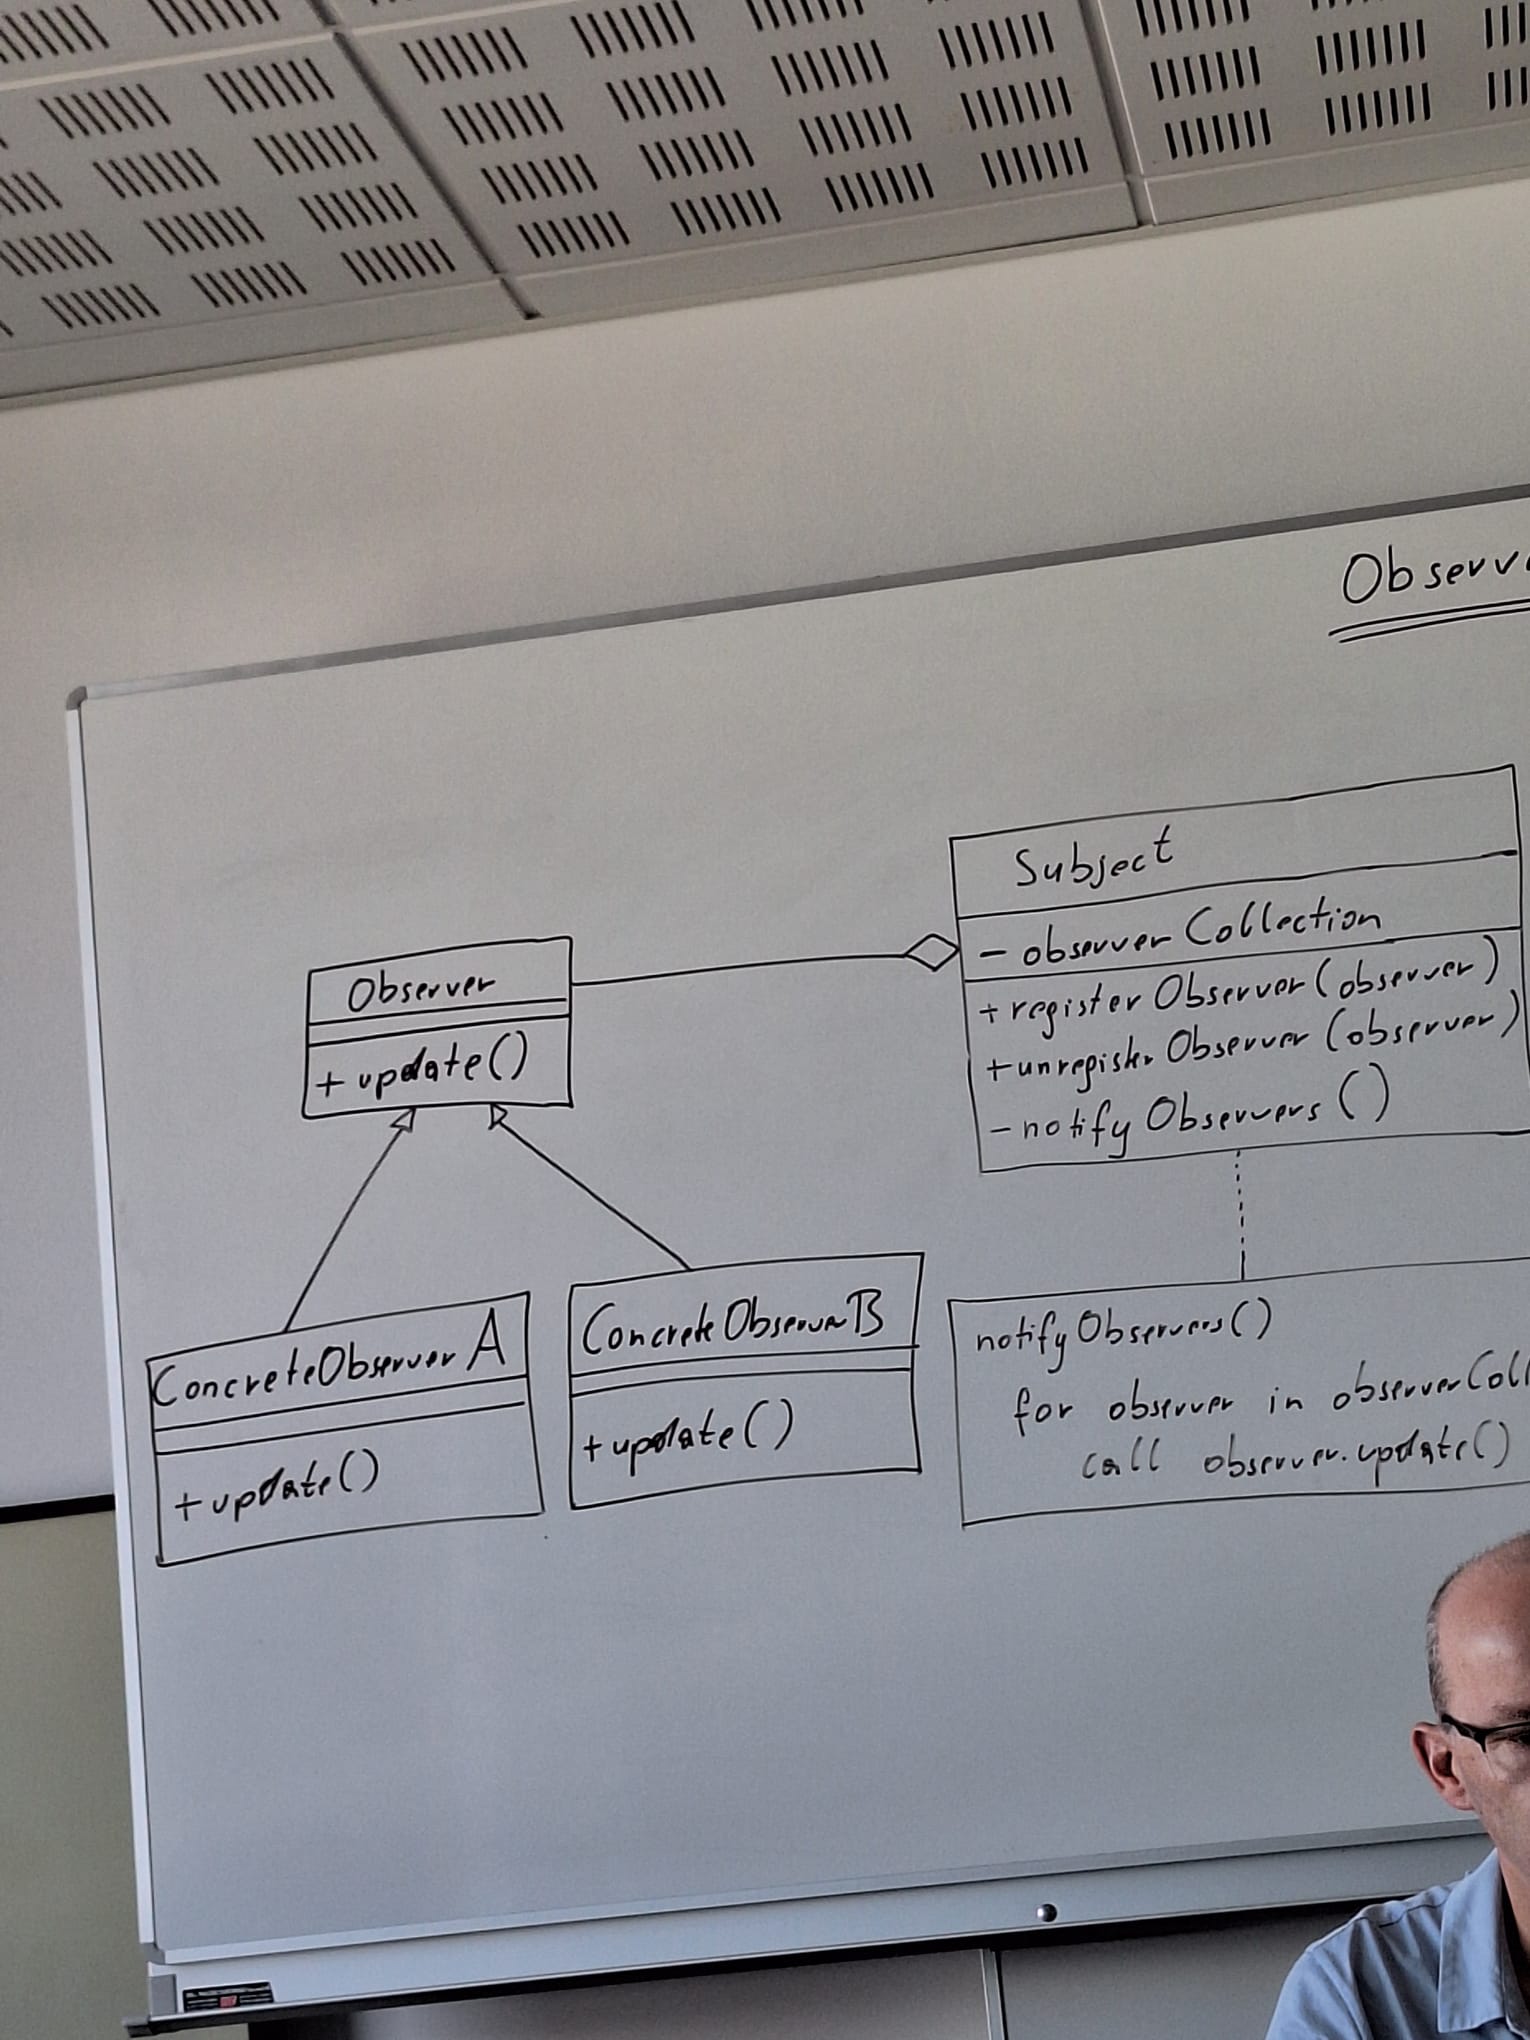 Observer
+ update()
Subject
- observerCollection
+ registerObserver(observer)
+ unregisterObserver(observer)
- notifyObservers()
ConcreteObserverA
+ update()
ConcreteObserverB
+ update()
notifyObservers()
for observer in
call observer.update()